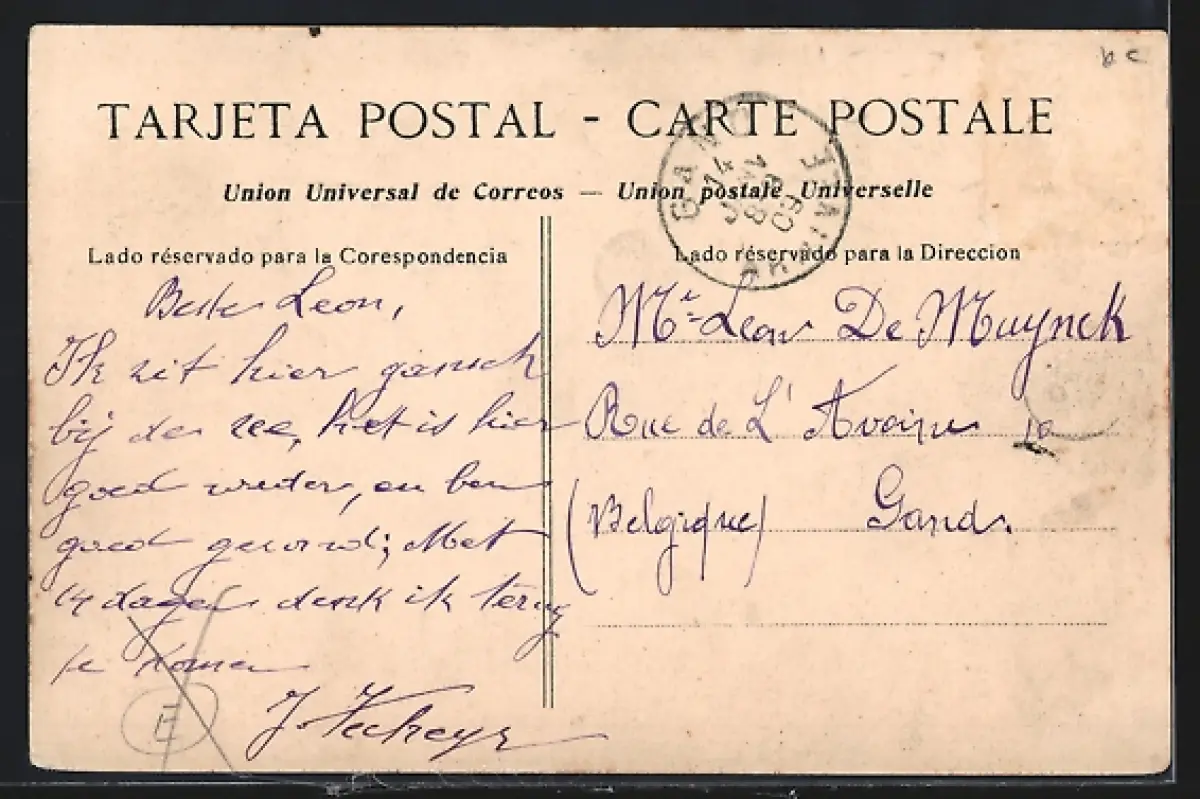 b c
TARJETA POSTAL - CARTE POSTALE
Union Universal de Correos — Union postale Universelle
GAND
14
8
09
Lado réservado para la Corespondencia
Lado réservado para la Direccion
Beste Leon,
Ik zit hier gansch
bij der zee, het is hier
goed weder, en ben
goed gezond; Met
14 dagen denk ik terug
te komen
E
Mr. Leon De Muynck
Rue de L'
(Belgique) Gand.